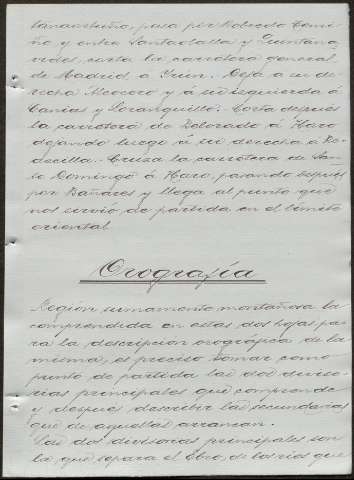 pasa por Robredo Temi-
ño y entre Santaolalla y Quintana
vides, corta la carretera general
de Madrid a Irún. Deja a su de-
recha Monasterio y á su izquierda á
y Corta después
la carretera de Belorado á Haro
dejando luego á su derecha á Re-
decilla. Cruza la carretera de San-
to Domingo á Haro, pasando después
por Bañares y llega al punto que
nos sirvió de partida en el límite
oriental
Orografía
Región sumamente montañosa la
comprendida en estas dos hojas pa-
ra la descripcion orográfica de la
misma, es preciso tomar como
punto de partida las dos diviso-
rias principales que comprende
y despues describir las secundarias
que de aquellas arrancan.
Las dos divisorias principales son
la, que separa el Ebro, de los rios que